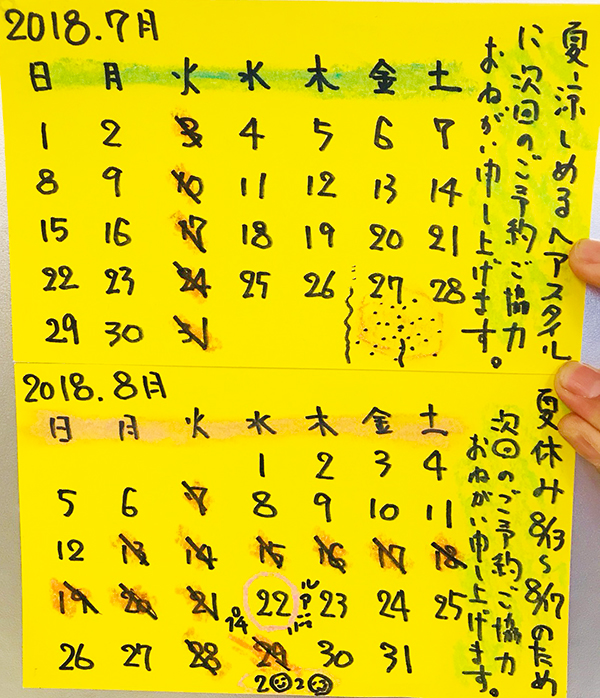 2018.7月
日 月 火 水 木 金 土
1 2 3 4 5 6 7
8 9 10 11 12 13 14
15 16 17 18 19 20 21
22 23 24 25 26 27 28
29 30 31
夏涼しめるヘアスタイル
に次回のご予約ご協力
おねがい申し上げます。
2018.8月
日 月 火 水 木 金 土
1 2 3 4
5 6 7 8 9 10 11
12 13 14 15 16 17 18
19 20 21 22 23 24 25
26 27 28 29 30 31
夏休み8/13〜8/17のため
次回のご予約ご協力
おねがい申し上げます。